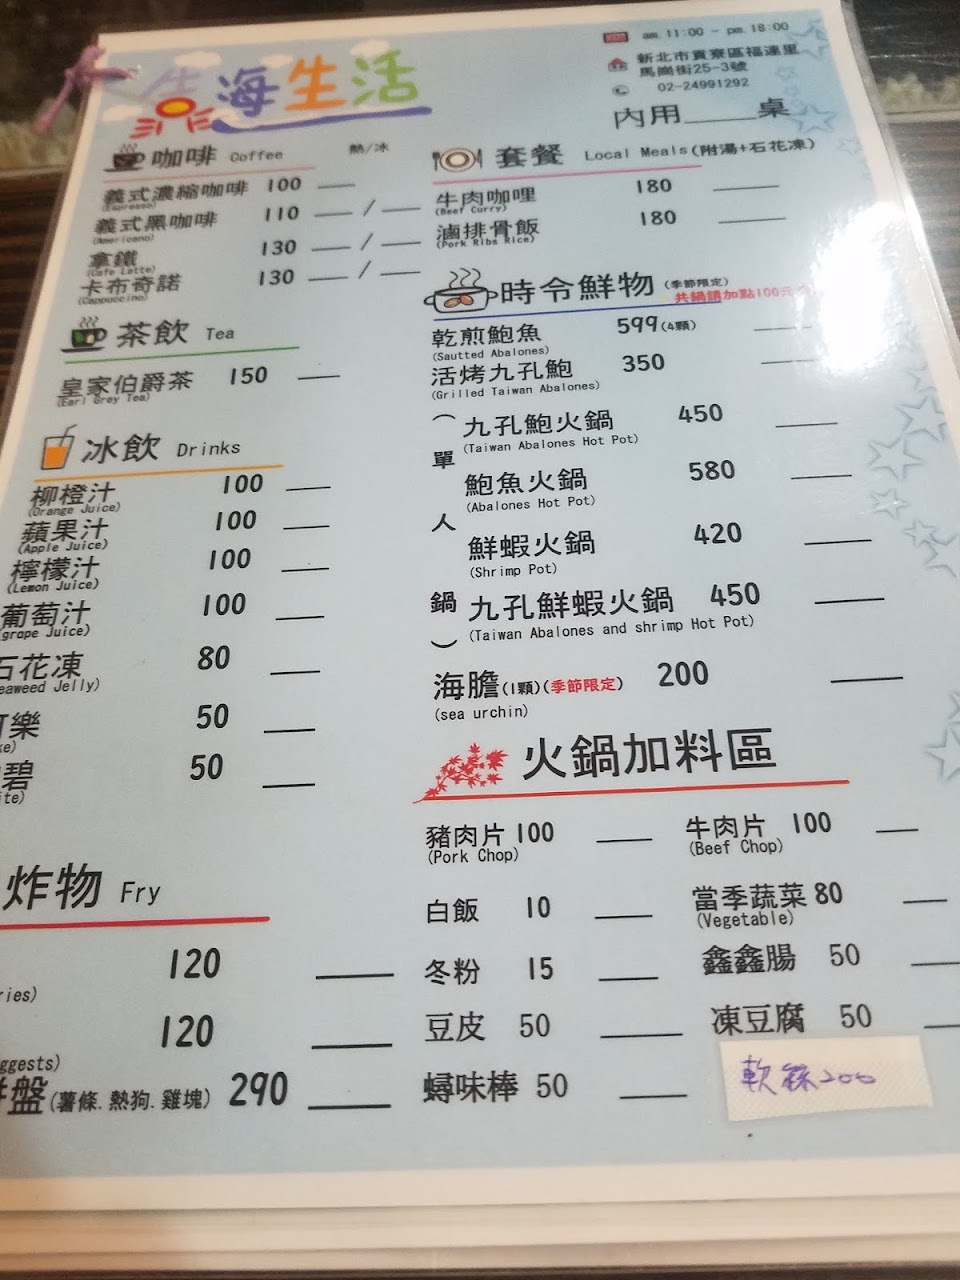 海生活
am 11:00 - pm 18:00
新北市貢寮區福連里
馬崗街25-3號
02-24991292
內用_____桌
咖啡 Coffee 熱/冰
義式濃縮咖啡 100
(Espresso)
義式黑咖啡 110 /
(Americano)
拿鐵 130 /
(Cafe Latte)
卡布奇諾 130 /
(Cappuccino)
茶飲 Tea
皇家伯爵茶 150
(Earl Grey Tea)
冰飲 Drinks
柳橙汁 100
(Orange Juice)
蘋果汁 100
(Apple Juice)
檸檬汁 100
(Lemon Juice)
葡萄汁 100
grape Juice)
石花凍 80
eaweed Jelly)
樂 50
ke)
碧 50
ite)
炸物 Fry
120
ries)
120
ggests)
盤(薯條.熱狗.雞塊) 290
套餐 Local Meals(附湯+石花凍)
牛肉咖哩 180
(Beef Curry)
滷排骨飯 180
(Pork Ribs Rice)
時令鮮物(季節限定)
共鍋請加點100元
乾煎鮑魚 599(4顆)
(Sautted Abalones)
活烤九孔鮑 350
(Grilled Taiwan Abalones)
(單人鍋)
九孔鮑火鍋 450
(Taiwan Abalones Hot Pot)
鮑魚火鍋 580
(Abalones Hot Pot)
鮮蝦火鍋 420
(Shrimp Pot)
九孔鮮蝦火鍋 450
(Taiwan Abalones and shrimp Hot Pot)
海膽(1顆)(季節限定) 200
(sea urchin)
火鍋加料區
豬肉片 100 牛肉片 100
(Pork Chop) (Beef Chop)
白飯 10 當季蔬菜 80
(Vegetable)
冬粉 15 鑫鑫腸 50
豆皮 50 凍豆腐 50
蟳味棒 50
軟絲200